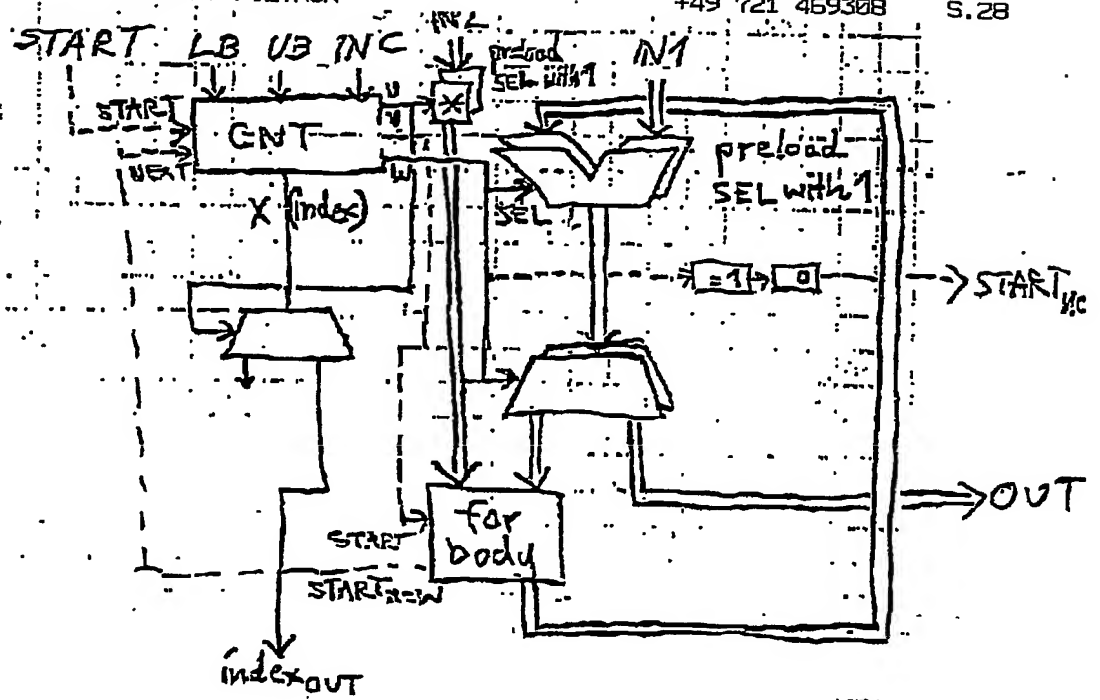 +49 721 469308 S.28
START LB UB INC
preload
SEL with 1
IN1
START
CNT
NEXT
X (index)
preload
SEL with 1
SEL
=1
0
START
OUT
for
body
START
START
index OUT